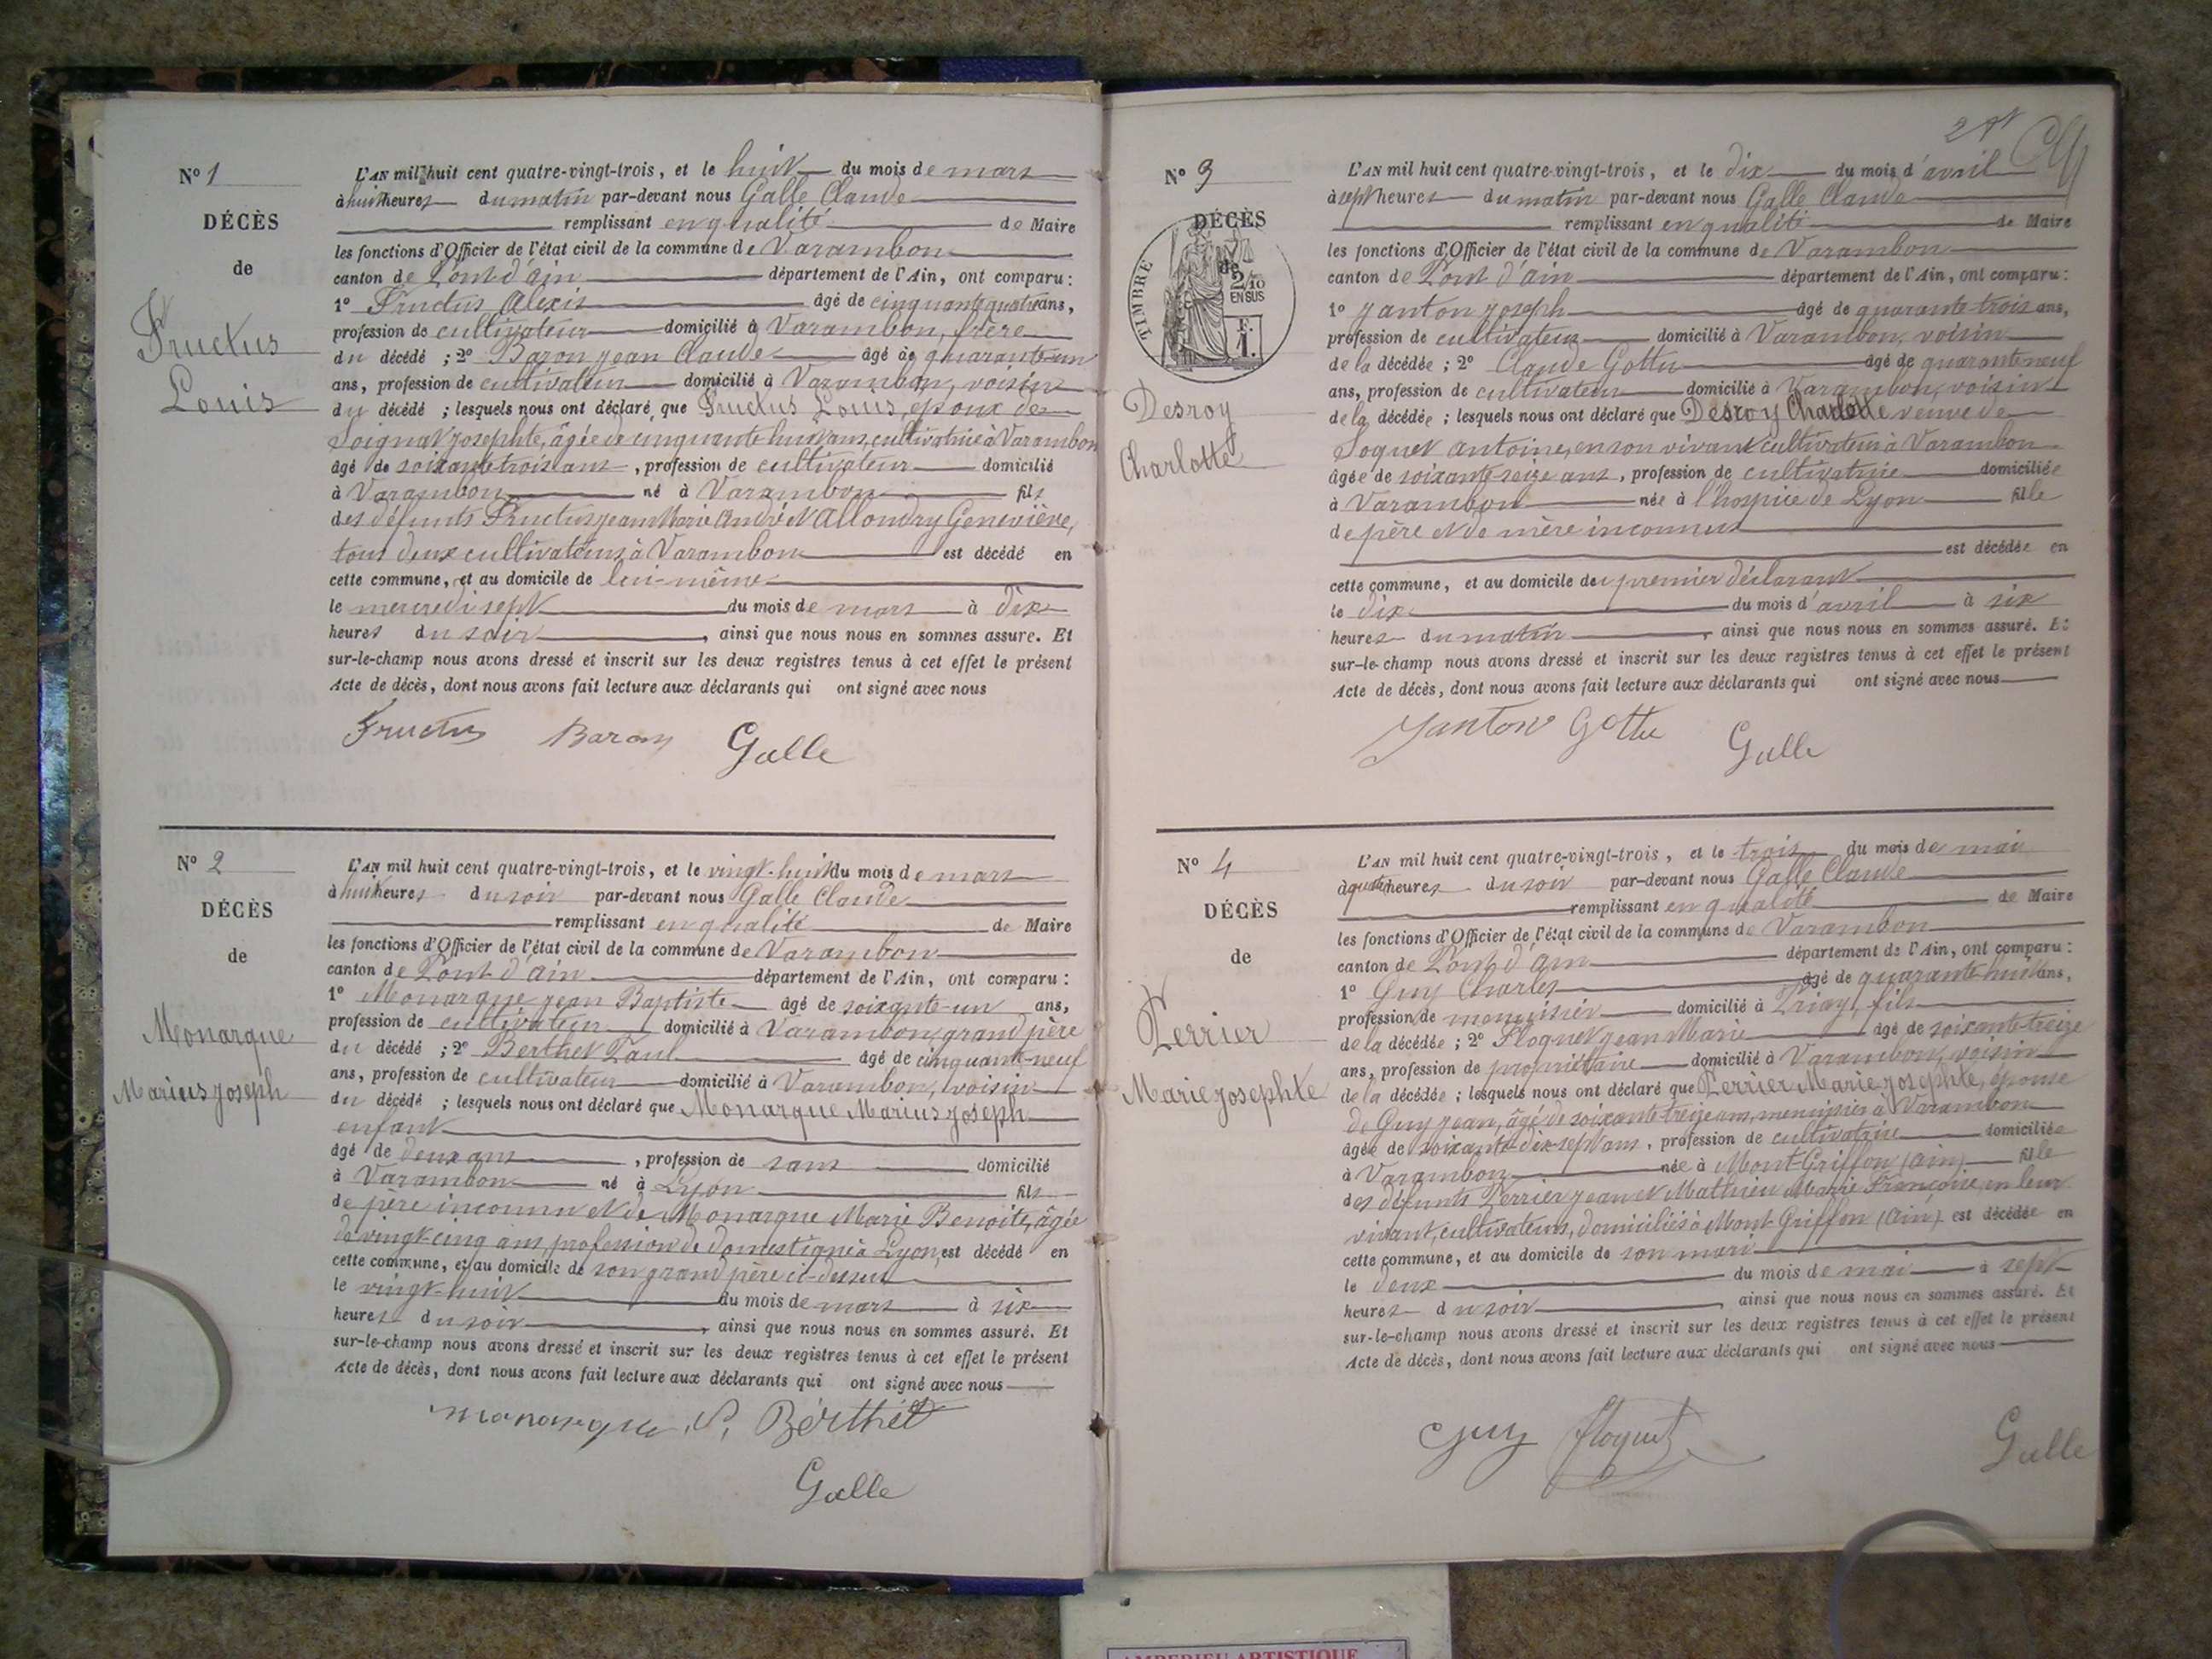 N° 1
DÉCÈS
de
Fructus
Louis
L'AN mil huit cent quatre-vingt-trois, et le huit du mois de mars
à huit heures du matin par-devant nous Galle Claude
remplissant en qualité de Maire
les fonctions d'Officier de l'état civil de la commune de Varambon
canton de Pont d'ain département de l'Ain, ont comparu :
1° Fructus Alexis âgé de cinquante quatre ans,
profession de cultivateur domicilié à Varambon, frère
du décédé ; 2° Baron jean Claude âgé de quarante-un
ans, profession de cultivateur domicilié à Varambon, voisin
du décédé ; lesquels nous ont déclaré que Fructus Louis, époux de
Soignat josephte, âgée de cinquante-huit ans, cultivatrice à Varambon
âgé de soixante trois ans, profession de cultivateur domicilié
à Varambon né à Varambon fils
des défunts Fructus jean Marie André et Allondry Geneviève,
tous deux cultivateurs à Varambon est décédé en
cette commune, et au domicile de lui-même
le mercredi sept du mois de mars à dix
heures du soir, ainsi que nous nous en sommes assuré. Et
sur-le-champ nous avons dressé et inscrit sur les deux registres tenus à cet effet le présent
Acte de décès, dont nous avons fait lecture aux déclarants qui ont signé avec nous
Fructus Baron Galle
N° 2
DÉCÈS
de
Monarque
Marius joseph
L'AN mil huit cent quatre-vingt-trois, et le vingt-huit du mois de mars
à huit heures du soir par-devant nous Galle Claude
remplissant en qualité de Maire
les fonctions d'Officier de l'état civil de la commune de Varambon
canton de Pont d'ain département de l'Ain, ont comparu :
1° Monarque jean Baptiste âgé de soixante-un ans,
profession de cultivateur domicilié à Varambon, grand père
du décédé ; 2° Berthet Paul âgé de cinquante-neuf
ans, profession de cultivateur domicilié à Varambon, voisin
du décédé ; lesquels nous ont déclaré que Monarque Marius joseph
enfant
âgé de deux ans, profession de sans domicilié
à Varambon né à Lyon fils
de père inconnu et de Monarque Marie Benoite, âgée
de vingt-cinq ans, profession de domestique à Lyon, est décédé en
cette commune, et au domicile de son grand père ci-dessus
le vingt-huit du mois de mars à six
heures du soir, ainsi que nous nous en sommes assuré. Et
sur-le-champ nous avons dressé et inscrit sur les deux registres tenus à cet effet le présent
Acte de décès, dont nous avons fait lecture aux déclarants qui ont signé avec nous
monarque P. Berthet
Galle
N° 3
DÉCÈS
de
TIMBRE
2/10
EN SUS
Desroy
Charlotte
L'AN mil huit cent quatre-vingt-trois, et le dix du mois d'avril
à sept heures du matin par-devant nous Galle Claude
remplissant en qualité de Maire
les fonctions d'Officier de l'état civil de la commune de Varambon
canton de Pont d'ain département de l'Ain, ont comparu :
1° janton joseph âgé de quarante trois ans,
profession de cultivateur domicilié à Varambon, voisin
de la décédée ; 2° Claude Gottu âgé de quarante neuf
ans, profession de cultivateur domicilié à Varambon, voisin
de la décédée ; lesquels nous ont déclaré que Desroy Charlotte veuve de
Soquet Antoine, en son vivant cultivateur à Varambon
âgée de soixante seize ans, profession de cultivatrice domiciliée
à Varambon née à l'hospice de Lyon fille
de père et de mère inconnus
est décédée en
cette commune, et au domicile du premier déclarant
le dix du mois d'avril à six
heures du matin, ainsi que nous nous en sommes assuré. Et
sur-le-champ nous avons dressé et inscrit sur les deux registres tenus à cet effet le présent
Acte de décès, dont nous avons fait lecture aux déclarants qui ont signé avec nous
Janton Gottu Galle
N° 4
DÉCÈS
de
Perrier
Marie josephte
L'AN mil huit cent quatre-vingt-trois, et le trois du mois de mai
à quatre heures du soir par-devant nous Galle Claude
remplissant en qualité de Maire
les fonctions d'Officier de l'état civil de la commune de Varambon
canton de Pont d'ain département de l'Ain, ont comparu :
1° Guy Charles âgé de quarante-huit ans,
profession de menuisier domicilié à Priay, fils
de la décédée ; 2° Floquet jean Marie âgé de soixante-treize
ans, profession de propriétaire domicilié à Varambon, voisin
de la décédée ; lesquels nous ont déclaré que Perrier Marie josephte, épouse
de Guy jean, âgé de soixante-treize ans, menuisier à Varambon
âgée de soixante-dix-sept ans, profession de cultivatrice domiciliée
à Varambon née à Mont-Griffon (Ain) fille
des défunts Perrier jean et Mathieu Marie Françoise, en leur
vivant, cultivateurs, domiciliés à Mont-Griffon (Ain) est décédée en
cette commune, et au domicile de son mari
le deux du mois de mai à sept
heures du soir, ainsi que nous nous en sommes assuré. Et
sur-le-champ nous avons dressé et inscrit sur les deux registres tenus à cet effet le présent
Acte de décès, dont nous avons fait lecture aux déclarants qui ont signé avec nous
Guy floquet
Galle
AMBERIEU ARTISTIQUE